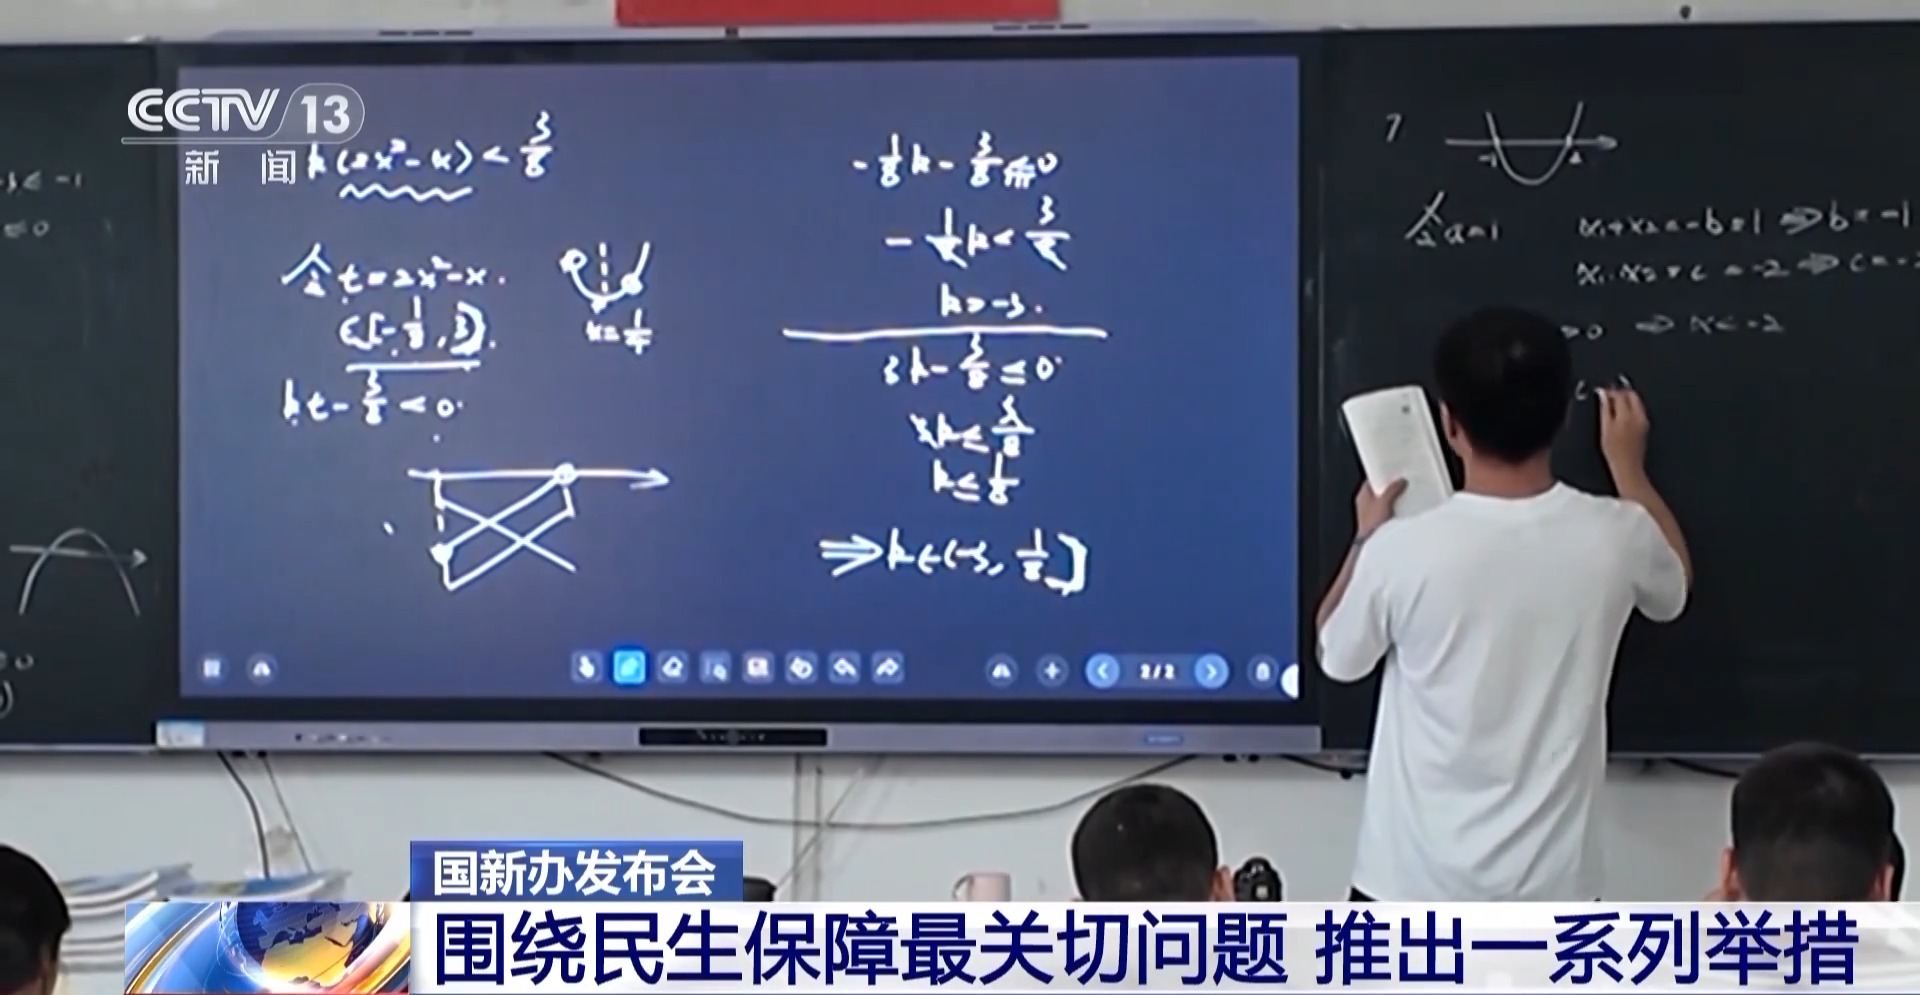 CCTV 13
新闻
k(2x²-x) < 3/8
令 t = 2x²-x.
∈[-1/8, 3].
x = 1/4
kt - 3/8 < 0.
-1/8k - 3/8 < 0
-1/8k < 3/8
k > -3.
3k - 3/8 ≤ 0
3k ≤ 3/8
k ≤ 1/8
⇒ k ∈ (-3, 1/8]
2/2
≤ -1
≤ 0
7
-1 2
令 a=1
x₁+x₂ = -b = 1 ⇒ b = -1
x₁·x₂ = c = -2 ⇒ c = -2
>0 ⇒ x < -2
国新办发布会
围绕民生保障最关切问题 推出一系列举措